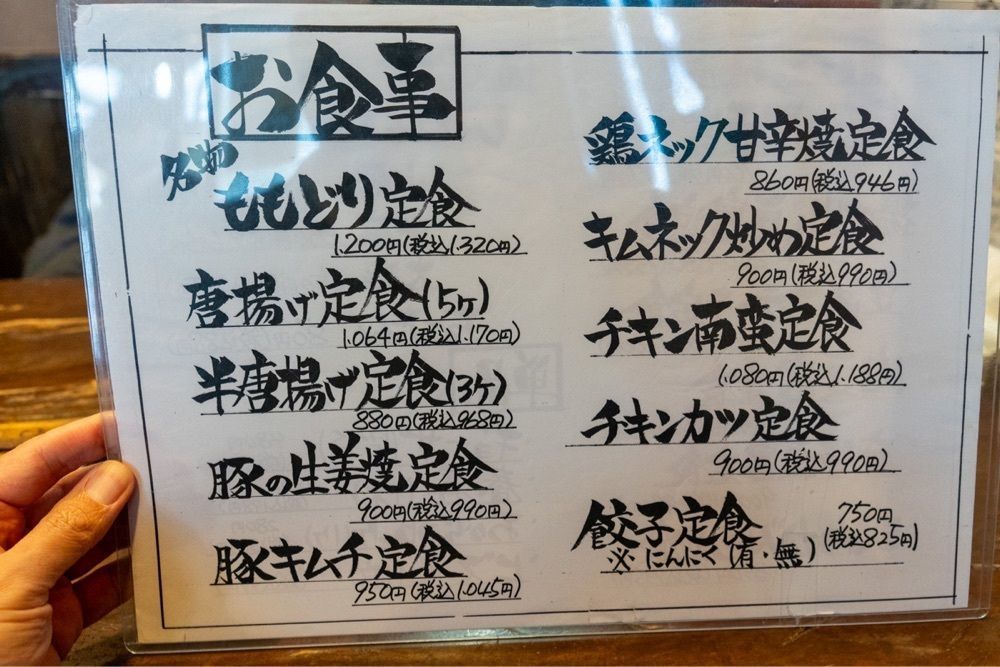 お食事
名物
ももどり定食
1.200円(税込1.320円)
唐揚げ定食(5ケ)
1.064円(税込1.170円)
半唐揚げ定食(3ケ)
880円(税込968円)
豚の生姜焼定食
900円(税込990円)
豚キムチ定食
950円(税込1.045円)
鶏ネック甘辛焼定食
860円(税込946円)
キムネック炒め定食
900円(税込990円)
チキン南蛮定食
1.080円(税込1.188円)
チキンカツ定食
900円(税込990円)
餃子定食
750円
(税込825円)
※にんにく(有・無)